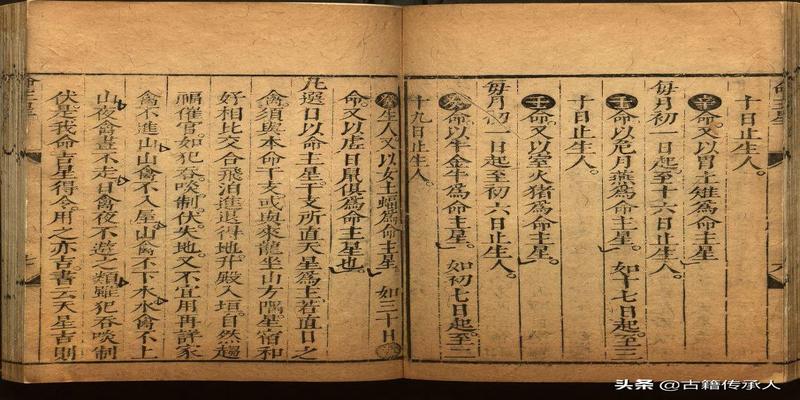 命主星
十日止生人。
辛命又以胃土雉為命主星
每月初一日起至十六日止生人。
壬命以危月燕為命主星。如十七日起至三
十日止生人。
壬命又以室火猪為命主星。
每月初一日起至初六日止生人。
癸命以牛金牛為命主星。如初七日起至二
十九日止生人。
癸生人又以女土蝠為命主星 如三十日癸
命又以虛日鼠俱為命主星也
凡選日以命主星干支所直天星為主若直日之
禽須與本命干支或與來龍坐山方隅星宿和
好相比交合飛泊進退得地升殿入垣自然趨
福催官。如犯吞啖制伏失地。又不宜用再詳家
禽不進山山禽不入屋山禽不下水水禽不上
山夜禽晝不走日禽夜不遊之類雖犯吞啖制
伏是我命吉星得令用之亦吉。書云天星吉則
命主星
头条 @古籍传承人